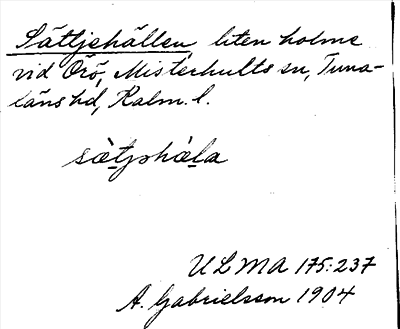 Sättjehällen, liten holme
vid Örö, Misterhults sn, Tuna-
läns hd, Kalm. l.
sàtjohàla
ULMA 175:237
A. Gabrielsson 1904